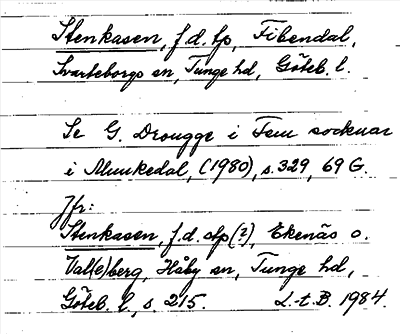 Stenkasen, f.d. tp, Fibendal,
Svarteborgs sn, Tunge hd, Göteb. l.
Se G. Drougge i Fem socknar
i Munkedal, (1980), s. 329, 69 G.
Jfr:
Stenkasen, f.d. stp(?), Ekenäs o.
Val(e)berg, Håby sn, Tunge hd,
Göteb. l, s. 215. L-t. B. 1984.